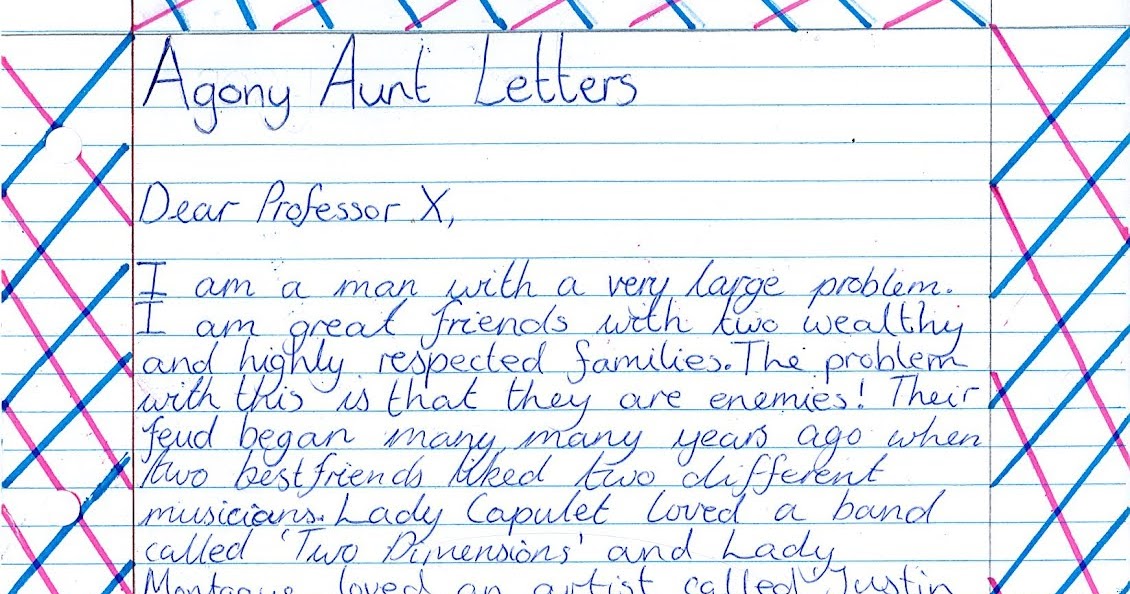 Agony Aunt Letters
Dear Professor X,
I am a man with a very large problem.
I am great friends with two wealthy
and highly respected families. The problem
with this is that they are enemies! Their
feud began many, many years ago when
two best friends liked two different
musicians. Lady Capulet loved a band
called 'Two Dimensions' and Lady
Montague loved an artist called 'Justin